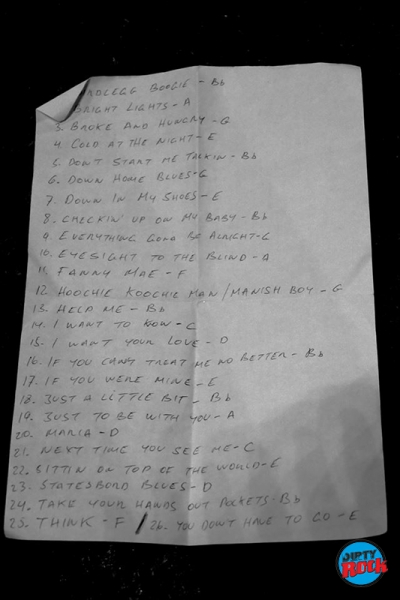 BOOGIE - Bb
BRIGHT LIGHTS - A
3. BROKE AND HUNGRY - G
4. COLD AT THE NIGHT - E
5. DON'T START ME TALKIN - Bb
6. DOWN HOME BLUES - G
7. DOWN IN MY SHOES - E
8. CHECKIN' UP ON MY BABY - Bb
9. EVERYTHING GONA BE ALRIGHT - C
10. EYESIGHT TO THE BLIND - A
11. FANNY MAE - F
12. HOOCHIE KOOCHIE MAN / MANISH BOY - G
13. HELP ME - Bb
14. I WANT TO KNOW - C
15. I WANT YOUR LOVE - D
16. IF YOU CAN'T TREAT ME NO BETTER - Bb
17. IF YOU WERE MINE - E
18. JUST A LITTLE BIT - Bb
19. JUST TO BE WITH YOU - A
20. MARIA - D
21. NEXT TIME YOU SEE ME - C
22. SITTIN ON TOP OF THE WORLD - E
23. STATESBORO BLUES - D
24. TAKE YOUR HANDS OUT POCKETS - Bb
25. THINK - F / 26. YOU DON'T HAVE TO GO - E
DIRTY
Rock